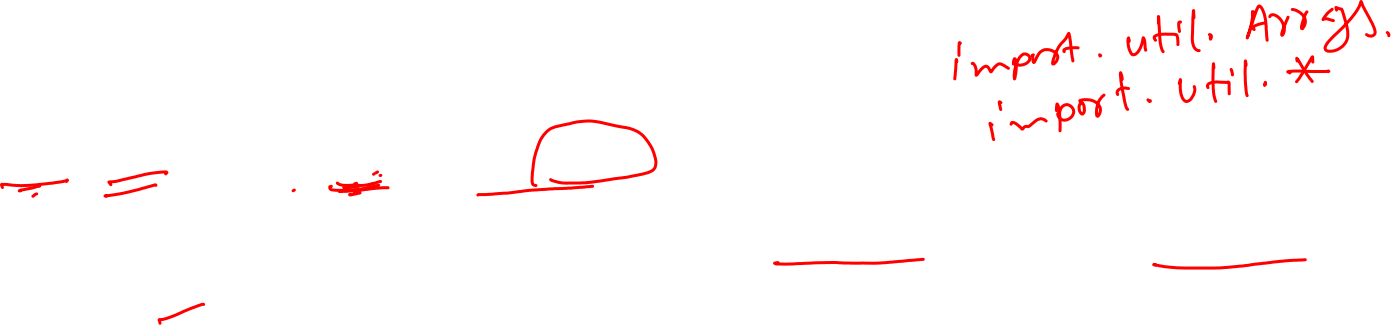 import. util. Arrays.
import. util. *